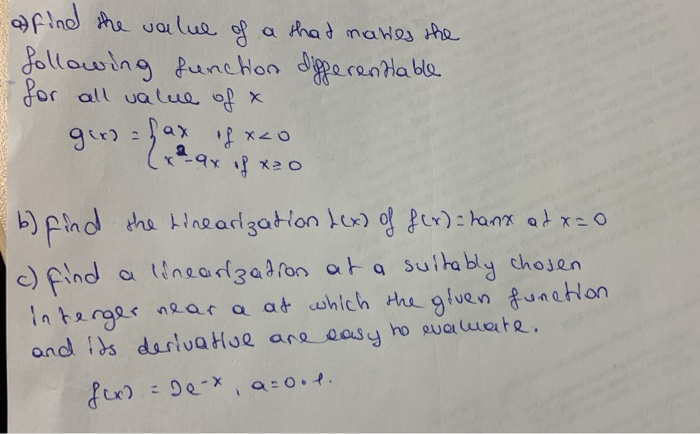 a) find the value of a that makes the
following function differentiable
for all value of x
g(x) = { ax if x<0
x²-9x if x≥0
b) find the Linearization L(x) of f(x)=tanx at x=0
c) find a linearization at a suitably chosen
interger near a at which the given function
and its derivative are easy to evaluate.
f(x) = 2e^-x, a=0.1.